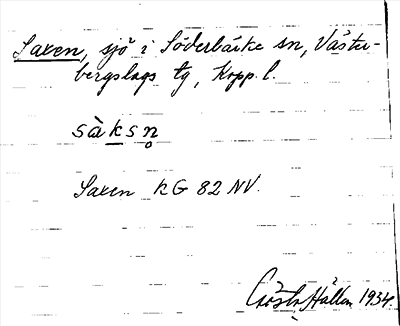 Saxen, sjö i Söderbärke sn, Väster-
bergslags tg, Kopp. l.
sàksn̥
Saxen KG 82 NV.
Gösta Hallen 1934.